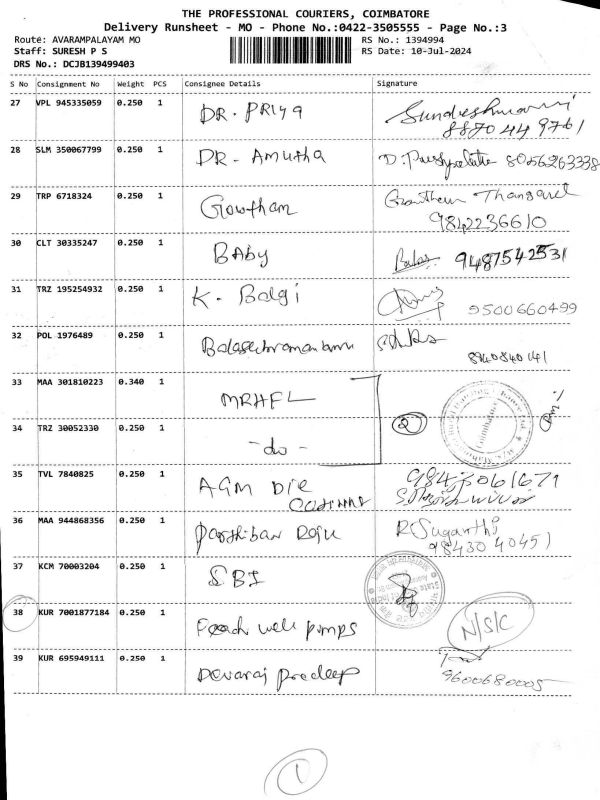 THE PROFESSIONAL COURIERS, COIMBATORE
Delivery Runsheet - MO - Phone No.:0422-3505555 - Page No.:3
Route: AVARAMPALAYAM MO RS No.: 1394994
Staff: SURESH P S RS Date: 10-Jul-2024
DRS No.: DCJB139499403
S No Consignment No Weight PCS Consignee Details Signature
27 VPL 945335059 0.250 1 DR. PRIYA
8870449761
28 SLM 350067799 0.250 1 DR. Amutha 8056263338
29 TRP 6718324 0.250 1 Gowtham
9842236610
30 CLT 30335247 0.250 1 BABY 9487542531
31 TRZ 195254932 0.250 1 K. Balgi
9500660499
32 POL 1976489 0.250 1 Balasubramaniam
8940840141
33 MAA 301810223 0.340 1 MRHFL
34 TRZ 30052330 0.250 1 -do- 2
35 TVL 7840825 0.250 1 AGM Die 9843061671
36 MAA 944868356 0.250 1 Parthiban Raju R Suganthi
9843040451
37 KCM 70003204 0.250 1 SBI
38 KUR 7001877184 0.250 1 Feach well pumps N/S/C
39 KUR 695949111 0.250 1 Devaraj Pradeep
9600680005
1